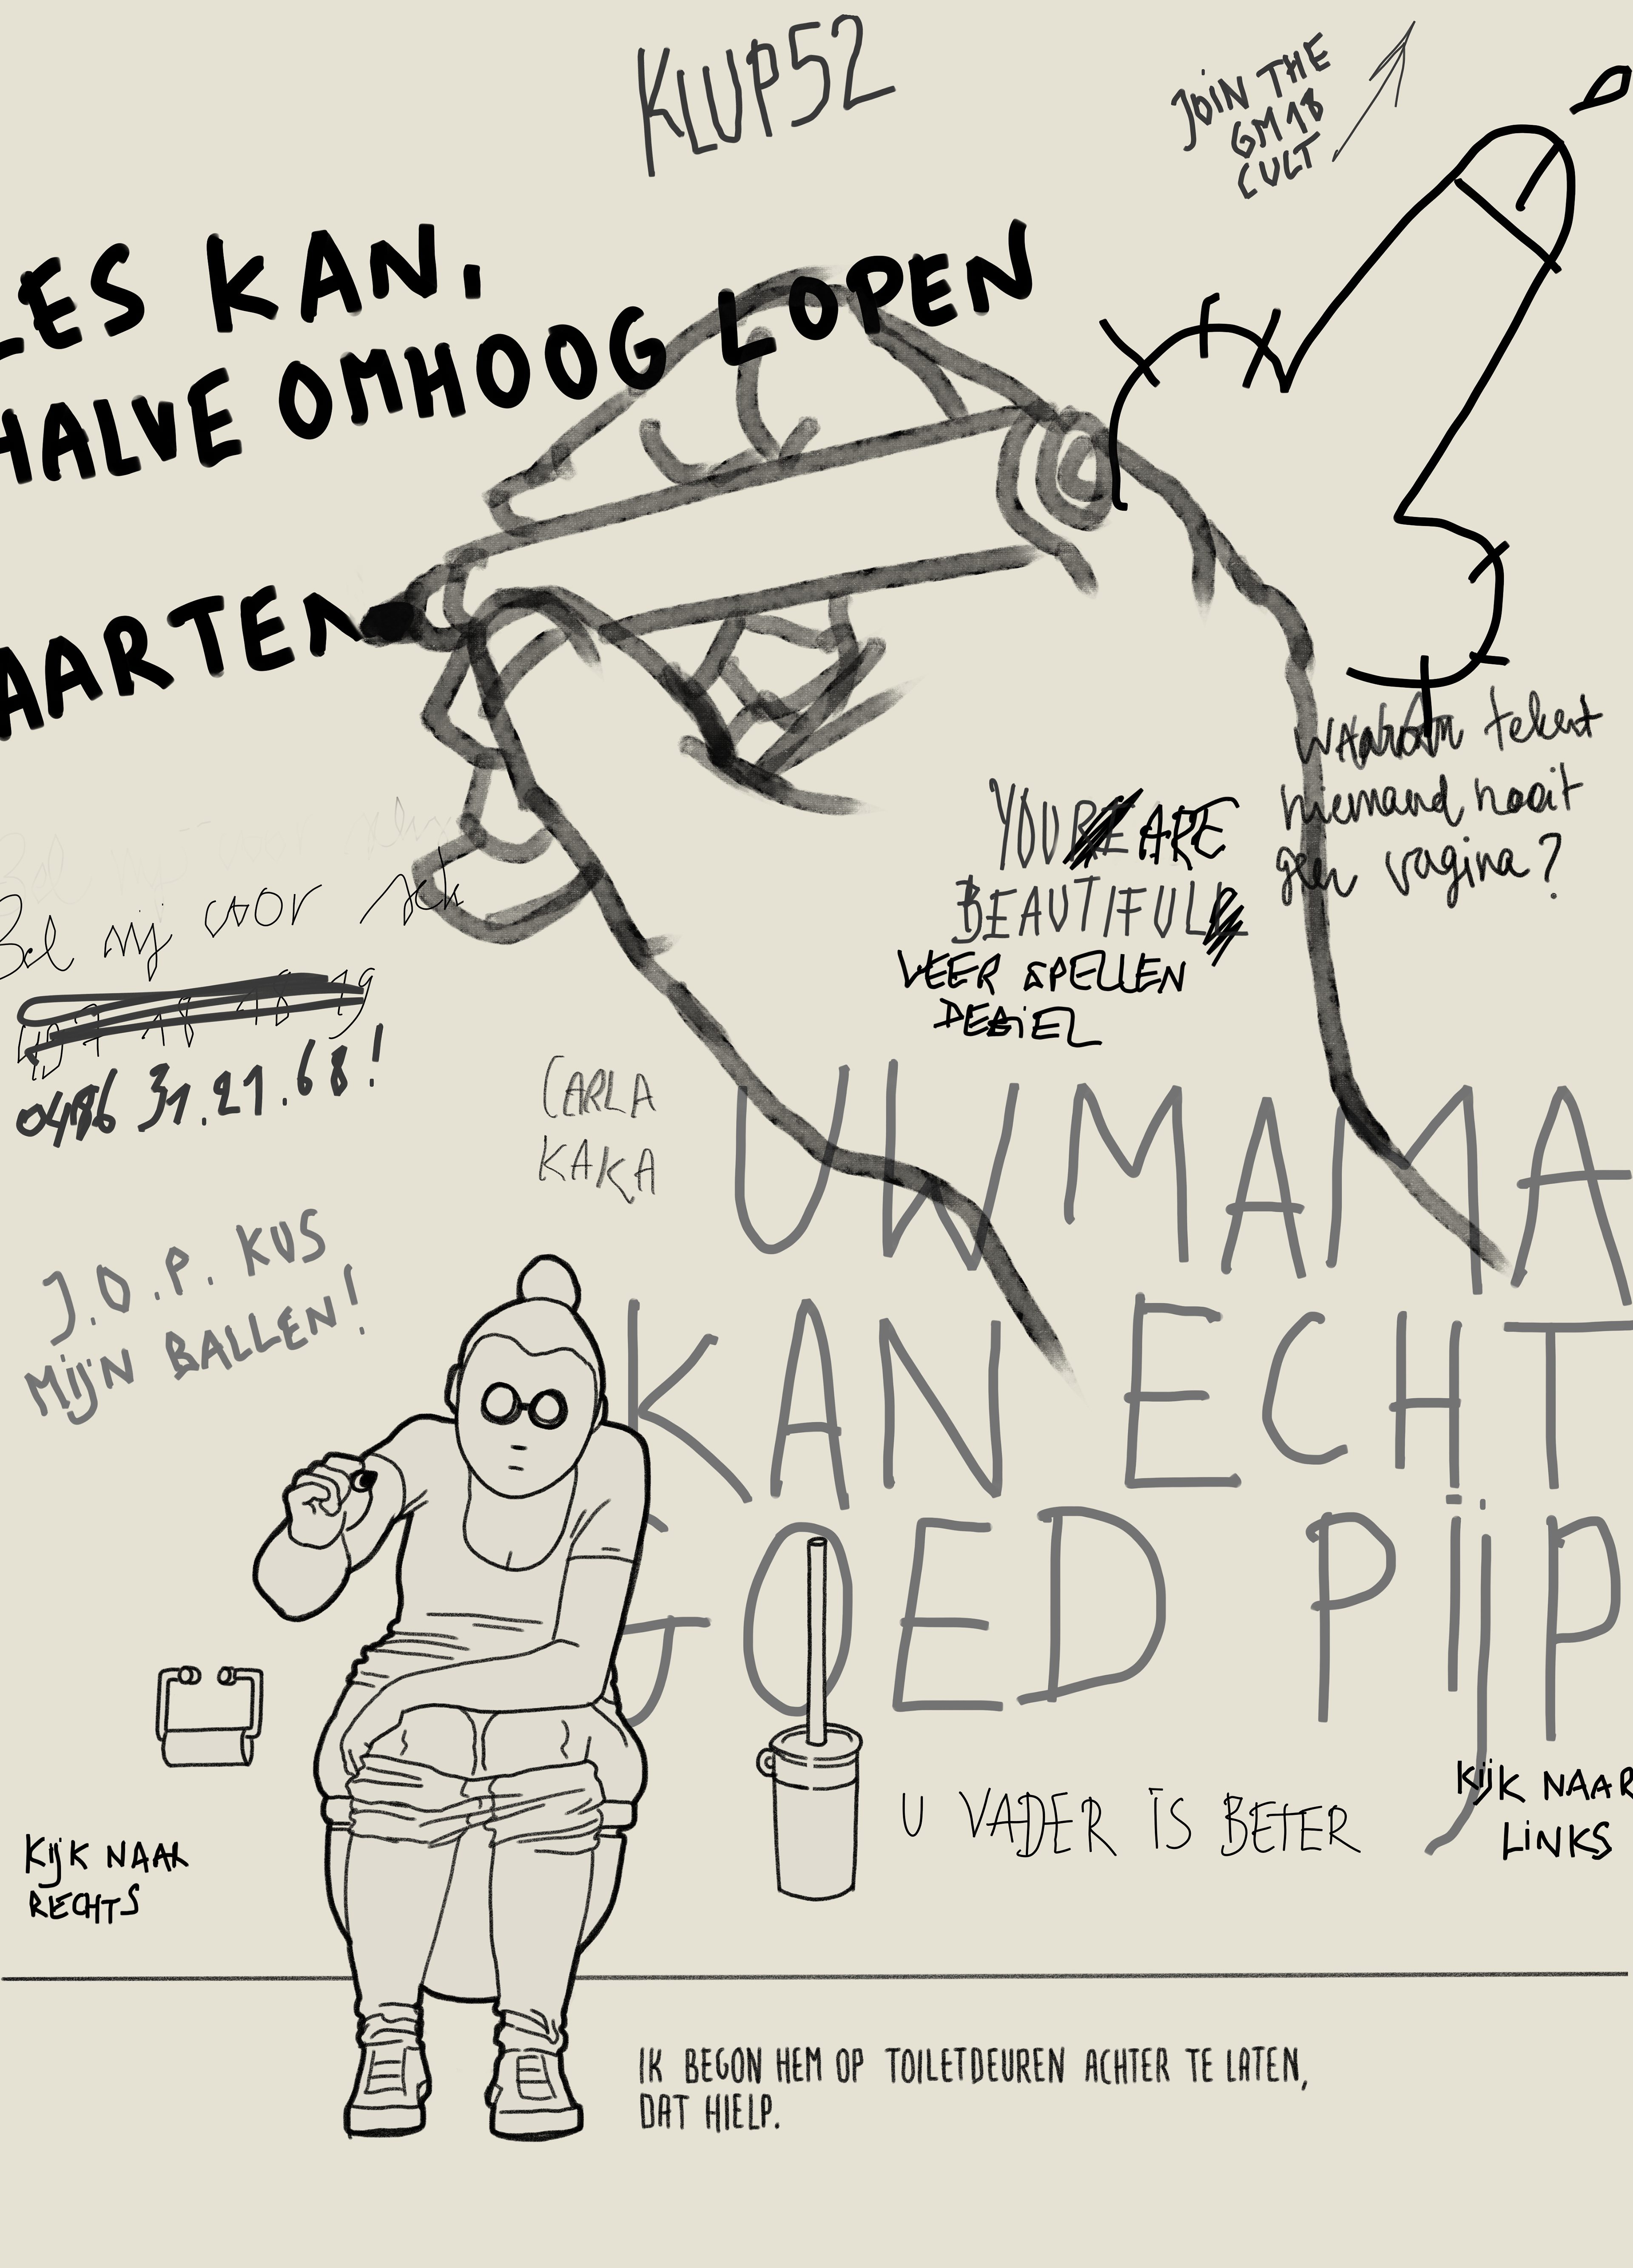 KLUP52
JOIN THE
GM18
CULT
LES KAN,
HALVE OMHOOG LOPEN
AARTEN
WAAROM tekent
niemand nooit
geen vagina?
YOURE ARE
BEAUTIFULL
LEER SPELLEN
DEBIEL
Bel mij voor
0486 31.21.68!
CARLA
KAKA
UW MAMA
KAN ECHT
GOED PIJP
J.O.P. KUS
MIJN BALLEN!
U VADER IS BETER
KIJK NAAR
LINKS
KIJK NAAR
RECHTS
IK BEGON HEM OP TOILETDEUREN ACHTER TE LATEN,
DAT HIELP.